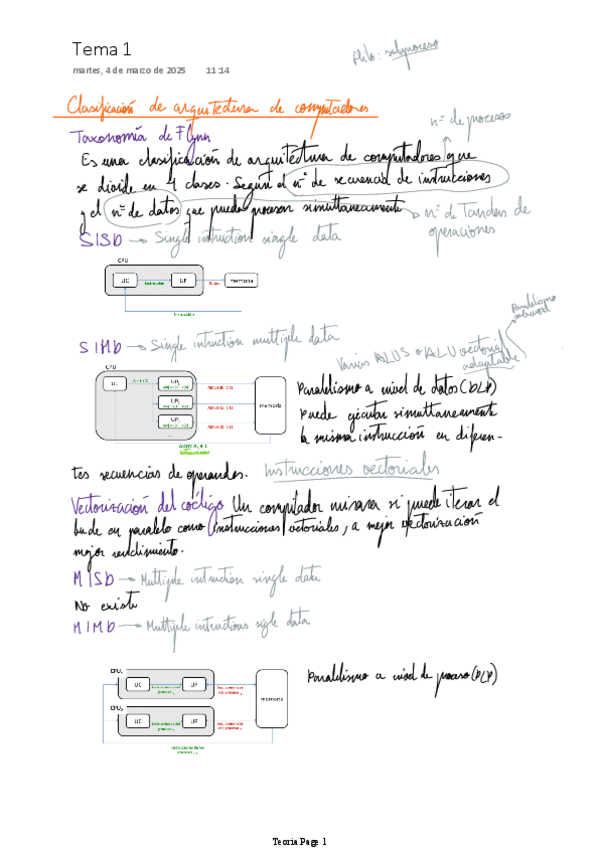 Tema 1
martes, 4 de marzo de 2025 11:14
Hilo: subproceso
Clasificación de arquitectura de computadores
nº de procesos
Taxonomía de Flynn
Es una clasificación de arquitectura de computadores que
se divide en 4 clases. Según el nº de secuencia de instrucciones
y el nº de datos que puede procesar simultaneamente
nº de Tandas de
operaciones
SISD → Single intruction single data
CPU
UC
UP
memoria
Instrucción
Datos
Instrucción
SIMD → Single intruction multiple data
Paralelismo
subword
Varias ALUS o ALU vectorial
adaptable
CPU
UC
UP₁
UP₂
UP₃
memoria
Paralelismo a nivel de datos (DLP)
Puede ejecutar simultaneamente
la misma instrucción en diferen-
tes secuencias de operandos. Instrucciones vectoriales
Vectorización del código Un compilador mirara si puede iterar el
bucle en paralelo como instrucciones vectoriales, a mejor vectorización
mejor rendimiento.
MISD → Multiple intruction single data
No existe
MIMD → Multiple intructions sigle data
CPU₁
UC
UP
CPU₂
UC
UP
memoria
Paralelismo a nivel de proceso (PLP)
Teoría Page 1